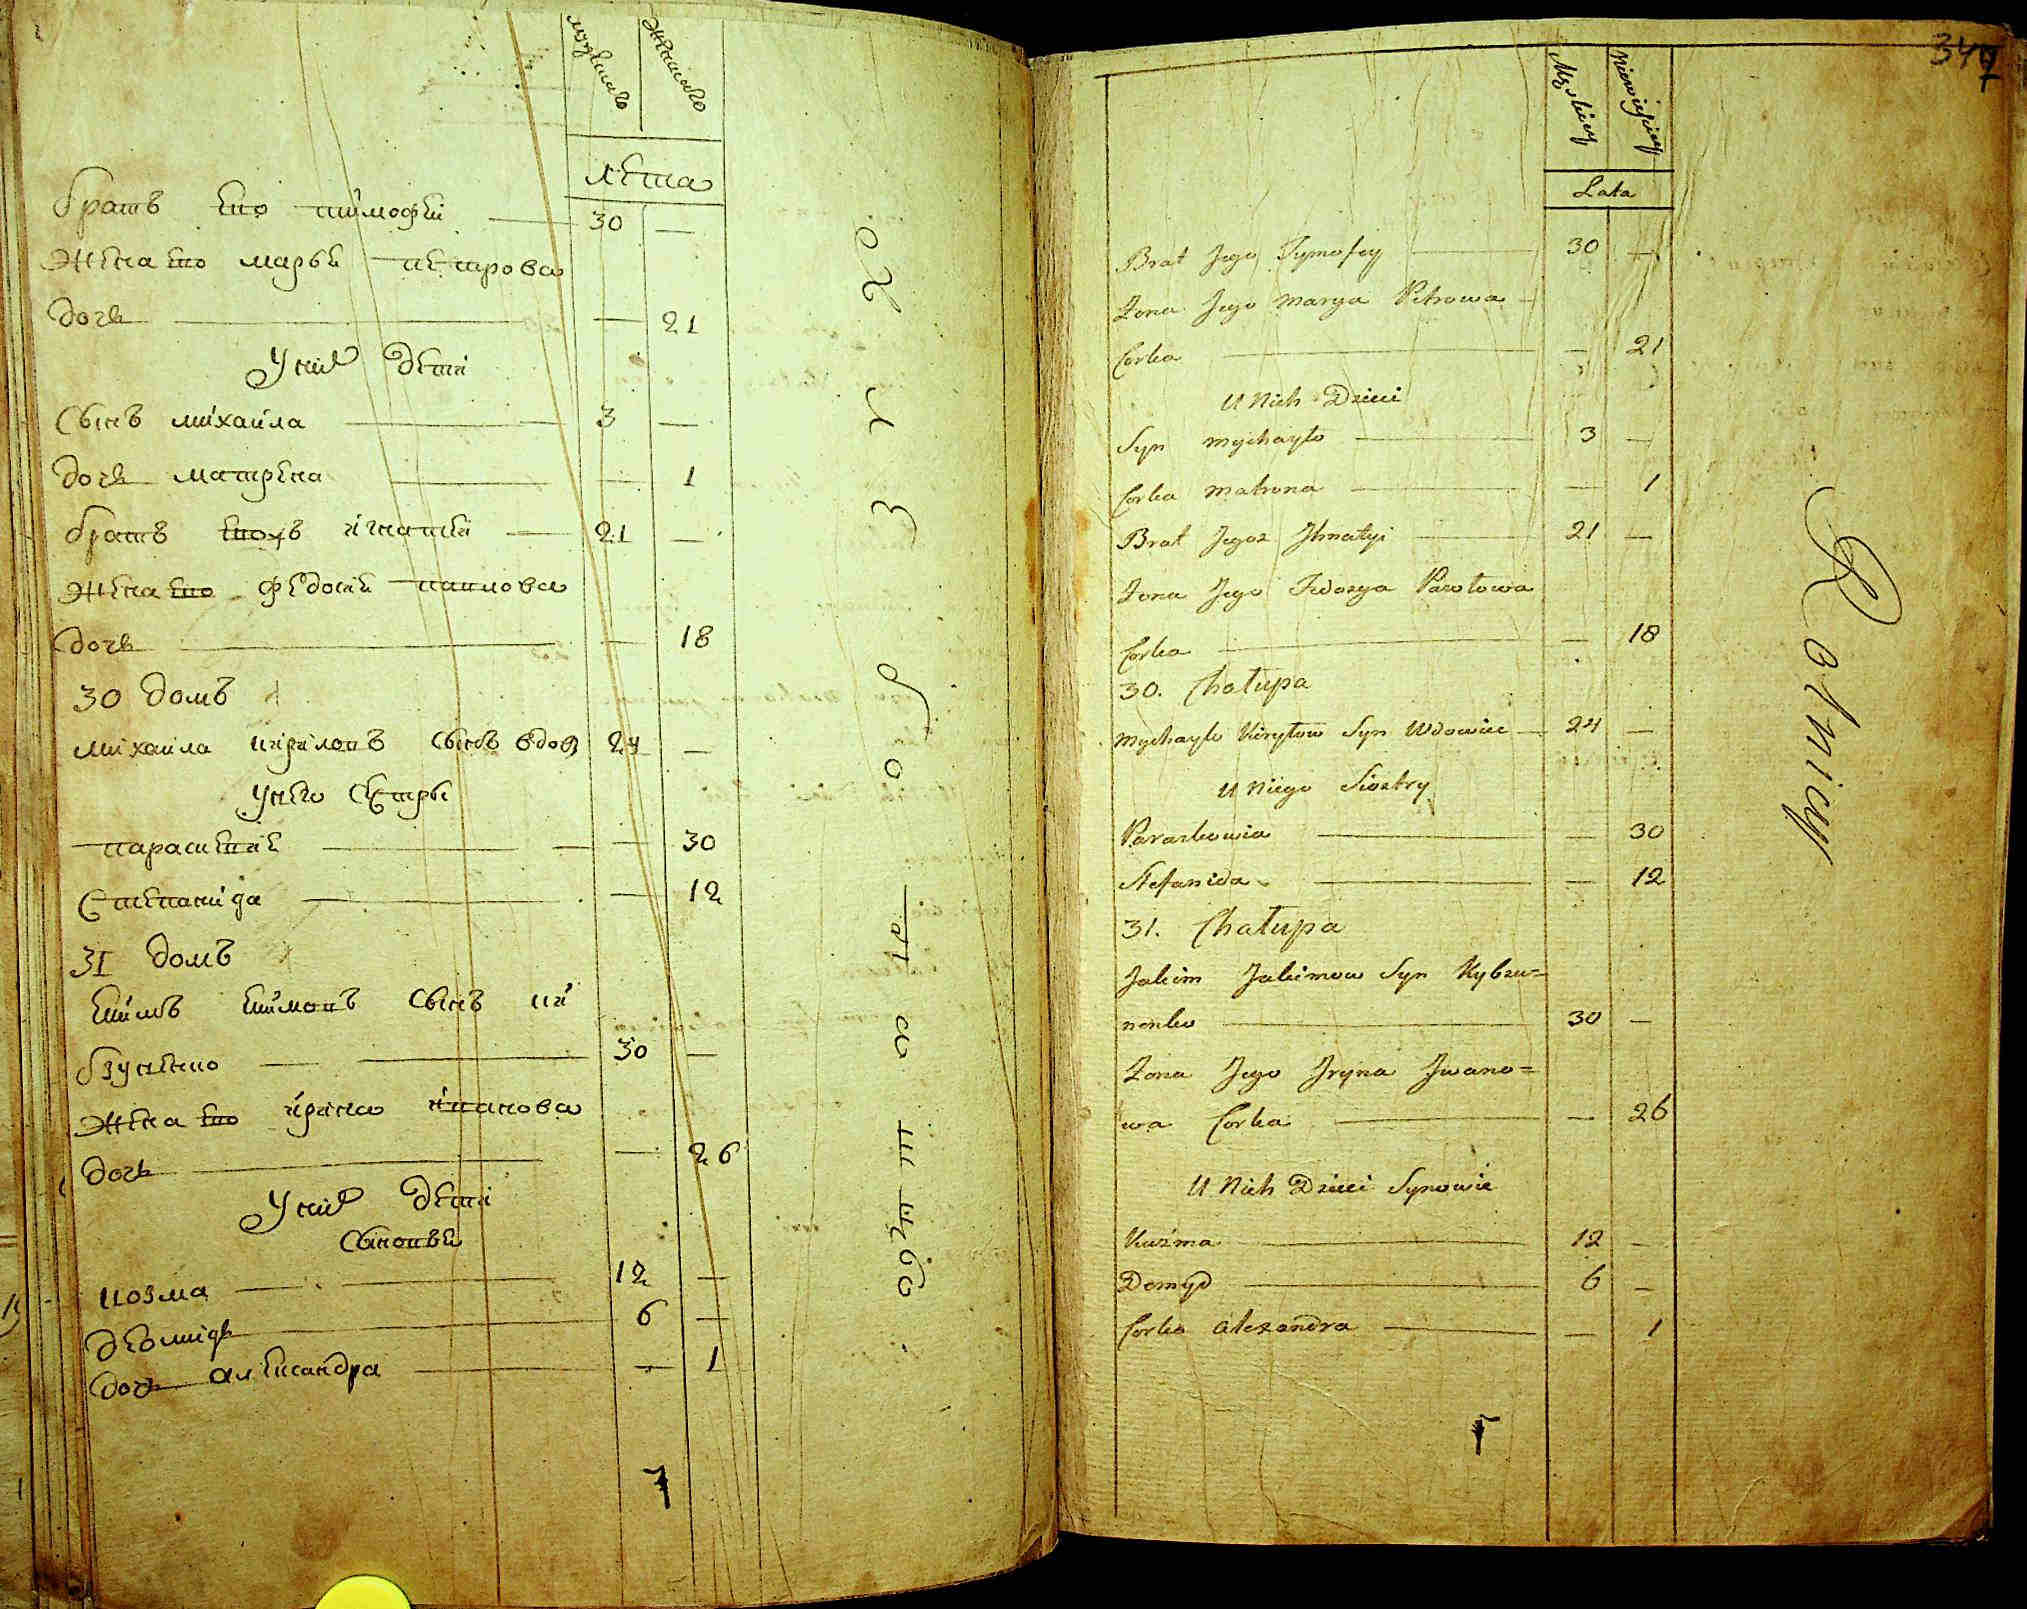 мужеска
женска
лета
братъ ево тимофей 30 —
жена ево марья петрова
дочь — 21
У них дети
Сынъ михайла 3 —
дочь матрена — 1
братъ евожъ игнатей 21 —
жена ево федосия павлова
дочь — 18
30 домъ
михайла кириловъ сынъ вдов 24 —
У нево сестры
парасковия — 30
Степанида — 12
31 домъ
екимъ екимовъ сынъ ки
бзуненко 30 —
жена ево ирина иванова
дочь — 26
У них дети
Сыновьи
козма 12 —
демидъ 6 —
дочь александра — 1
хлебопашецъ
347
Męskiey
Niewieskiey
Lata
Brat Jego Tymofey 30 —
Żona Jego Marya Petrowa
Corka — 21
U Nich Dzieci
Syn Mychayło 3 —
Corka Matrona — 1
Brat Jegoz Jhnatyi 21 —
Żona Jego Fedosya Pawłowa
Corka — 18
30. Chałupa
Mychayło Kiryłow Syn Wdowiec 24 —
U Niego Siostry
Paraskowia — 30
Stefanida — 12
31. Chałupa
Jakim Jakimow Syn Kybzu=
nenko 30 —
Żona Jego Jryna Jwano=
wa Corka — 26
U Nich Dzieci Synowie
Kuźma 12 —
Demyd 6 —
Corka Alexandra — 1
Rolnicy